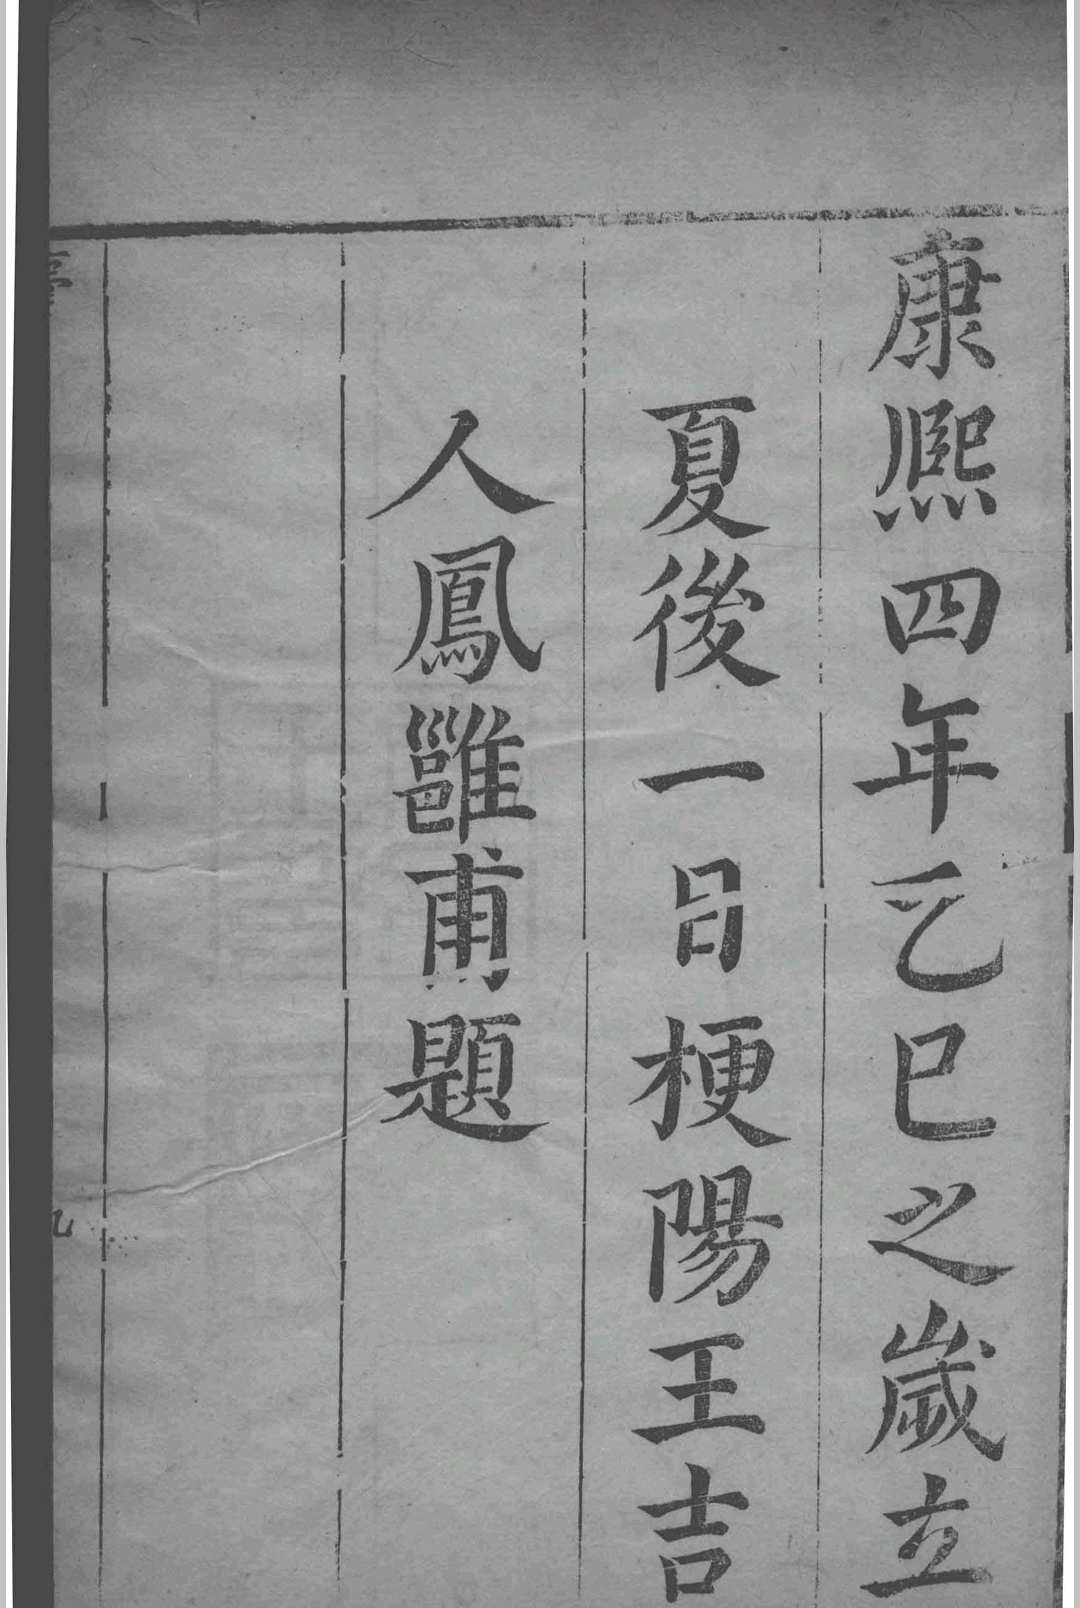 康熙四年乙巳之歲立
夏後一日梗陽王吉
人鳳雝甫題